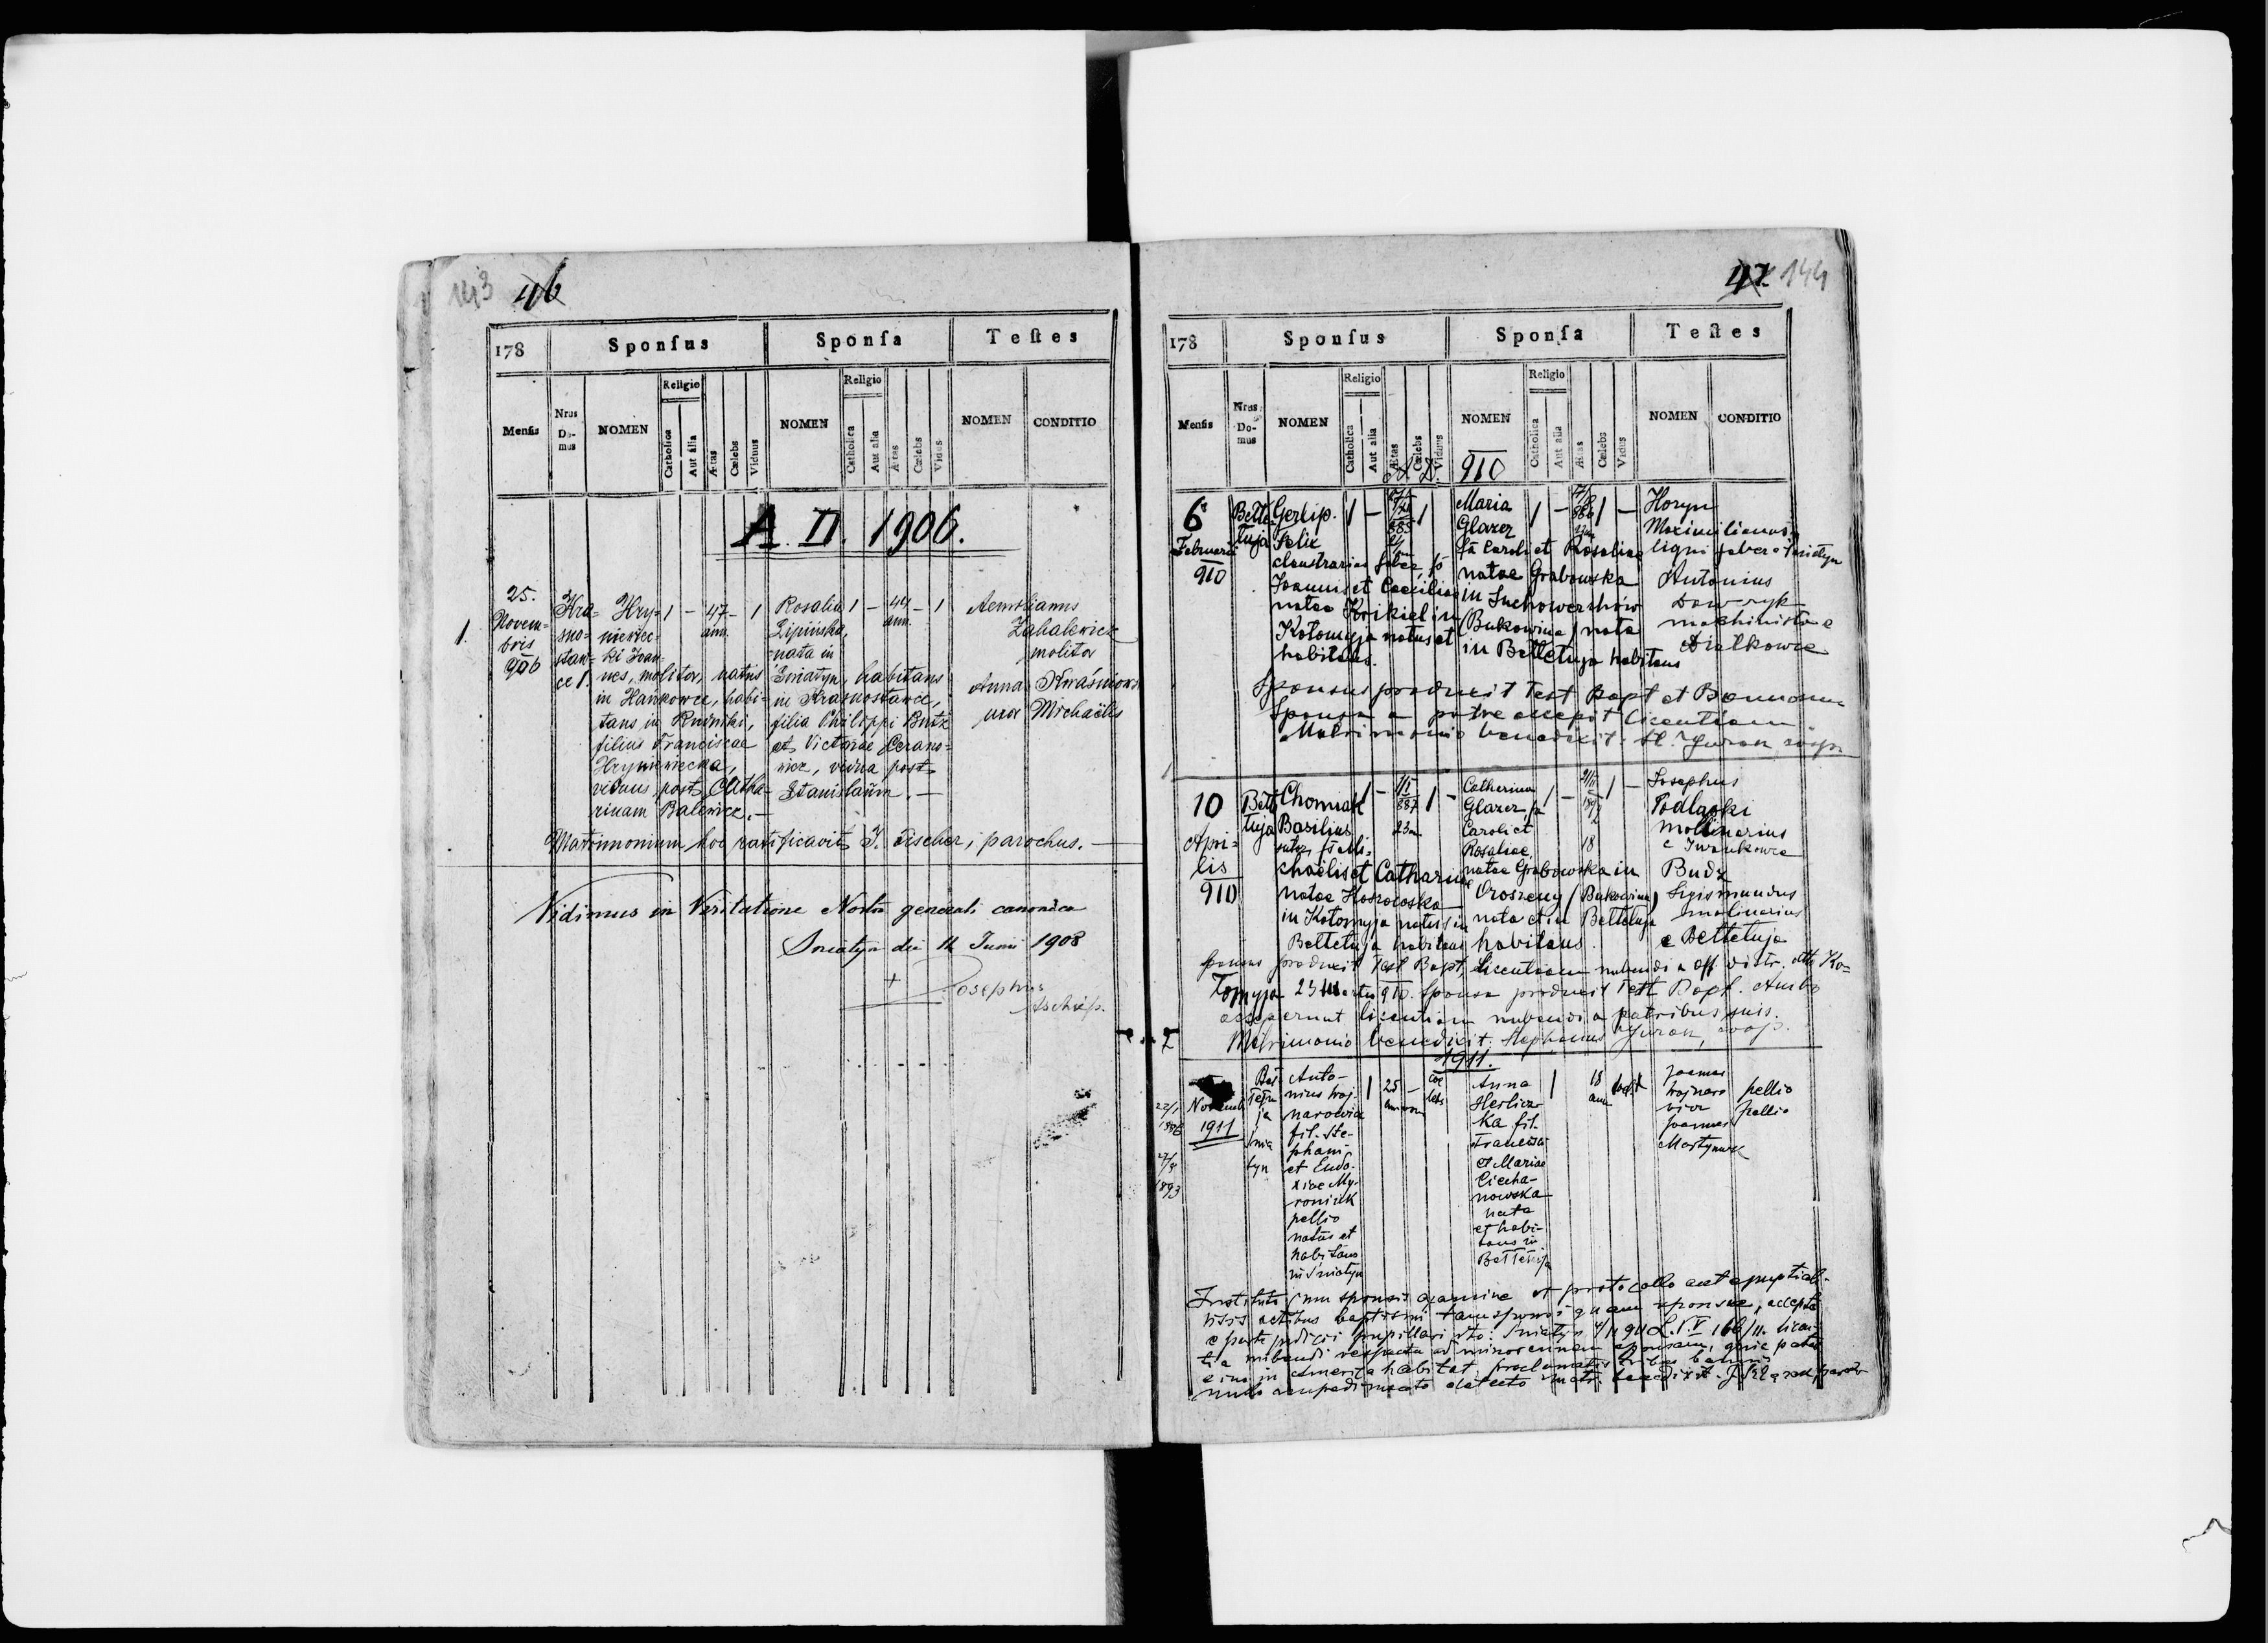 143 46
178 Sponſus Sponſa Teſtes
Menſis Nrus Do-mus NOMEN Religio Catholica Aut alia Ætas Cælebs Viduus NOMEN Religio Catholica Aut alia Ætas Cælebs Vidua NOMEN CONDITIO
A. D. 1906.
1.
25.
Novem=
bris
906
Kra=
sno=
staw=
ce 1.
Hry=
niewiec=
ki Joan=
nes, molitor, natus
in Hańkowce, habi=
tans in Rudniki,
filius Franciscae
Hryniewiecka,
viduus post Catha=
rinam Balewicz.—
1 — 47 ann. — 1
Rosalia
Lipińska,
nata in
Śniatyn, habitans
in Krasnostawce,
filia Philippi Budź
et Victoriae
vidua post
Stanislaum.—
1 — 44 ann. — 1
Aemilianus
Zahalewicz
molitor
Anna
uxor Michaëlis
Matrimonium hoc ratificavit J. Fischer, parochus.—
Vidimus in Visitatione Nostra generali canonica
Sniatyn die 12 Junii 1908
+ Josephus
47. 144
178 Sponſus Sponſa Teſtes
Menſis Nrus Do-mus NOMEN Religio Catholica Aut alia Ætas Cælebs Viduus NOMEN Religio Catholica Aut alia Ætas Cælebs Vidua NOMEN CONDITIO
A. D. 910
6
Februarii
910
Bełe=
łuja
Gerlip.
Felix
claustrarius faber, fs
Joannis et Caeciliae
natae Krikiel in
Kołomyja natus et
habitans.
Maria
Glazer
fa Caroli et Rosaliae
natae Grabowska
in Suchowerchów
(Bukowina) nata
in Bełełuja habitans
Horyn
Maximilianus
ligni faber e Sniatyn
Antonius
machinista e
Sponsus produxit Test Bapt et Bannorum
Sponsa a patre accepit licentiam
Matrimonio benedixit: St. Jurak
10
Apri-
lis
910
Bełe
łuja
Chomiak
Basilius
sutor, fs Mi-
chaëlis et Catharinae
natae
in Kołomyja natus in
Bełełuja habitans
1 — 887 23 1 —
Catherina
Glazer, fa
Caroli et
Rosaliae
natae Grabowska in
Oroszeny (Bukowina)
nata et in Bełełuja
habitans.
18
Josephus
Podlaski
mollinarius
e Iwankowce
Budź
Sigismundus
molinarius
e Bełełuja
Sponsus produxit Test Bapt, licentiam nubendi a off. distr. Ko=
łomyja 23 Martii 910. Sponsa produxit Test Bapt. Ambo
acceperunt licentiam nubendi a patribus suis.
Matrimonio benedixit: Stephanus Jurak,
1911.
Novemb
1911
22/1
1886
1893
Beł
ełu
ja
Snia
tyn
Anto-
nius Woj
narowicz
fil. Ste-
phani
et Eudo-
xiae My-
roniuk
pellio
natus et
habitans
in Sniatyn
1 25 annorum — coe
lebs
Anna
Herlicz-
ka fil.
Francisci
et Mariae
Ciecha-
nowska
nata
et habi-
tans in
Bełełuja
1 18
ann
Joannes
Wojnaro
wicz
Joannes
Martyniuk
pellio
pellio
Instituto cum sponsis examine et protocollo antenuptiali.
visis actibus baptismi tam sponsi quam sponsae, accepta
e parte judicii pupillari dto: Sniatyn
nubendi respectu ad minorennem sponsam, quia pater
ejus in America habitat, proclamatis tribus bannis
nullo impedimento detecto matr. benedixit.